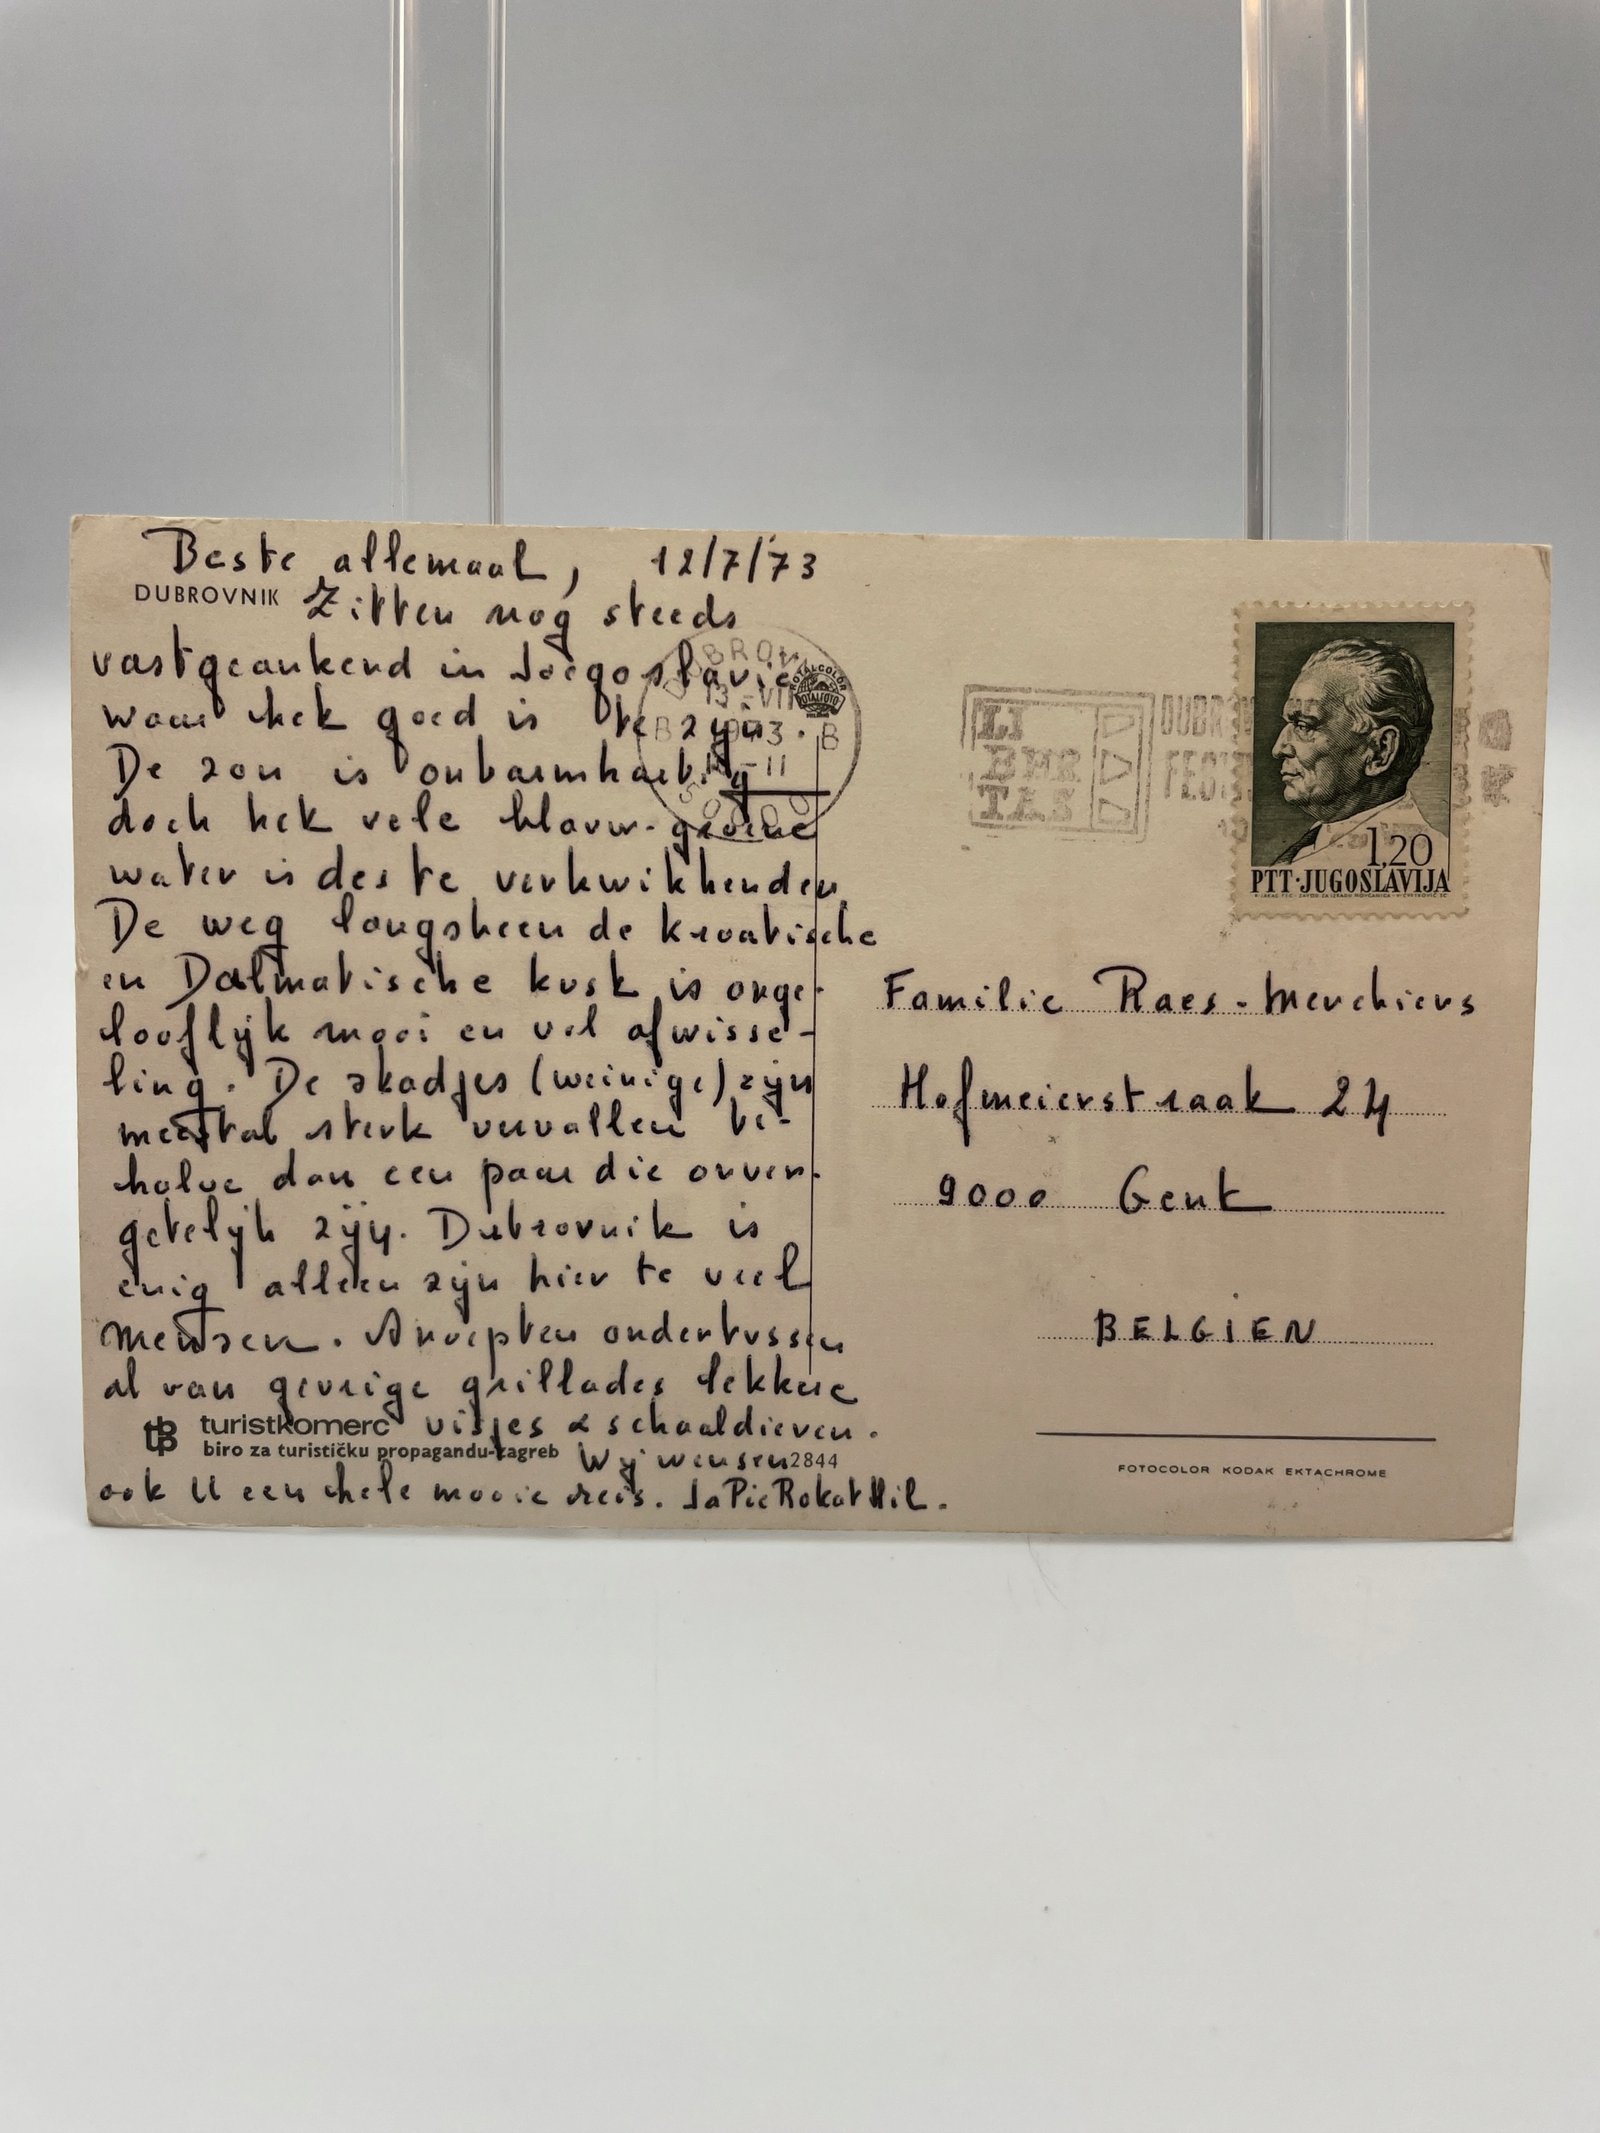 Beste allemaal, 12/7/'73
DUBROVNIK
Zitten nog steeds
vastgeankerd in Joegoslavie
waar het goed is te zijn.
De zon is onbarmhartig
doch het vele blauw-groene
water is des te verkwikkender.
De weg langsheen de kroatische
en Dalmatische kust is onge-
looflijk mooi en vol afwisse-
ling. De stadjes (weinige) zijn
meestal sterk vervallen be-
halve dan een paar die onver-
getelijk zijn. Dubrovnik is
enig alleen zijn hier te veel
mensen. ondertussen
al van geurige grillades lekkere
visjes & schaaldieren.
Wij wensen
ook U een hele mooie reis. JaPieRokatHil.
turistkomerc
biro za turističku propagandu-zagreb
2844
ROTALCOLOR
ROTALFOTO
DUBROV
13-VII
B 1973 B
-11
LI
BER
TAS
DUBR
FEST
1,20
PTT·JUGOSLAVIJA
Familie Raes-Merchiers
Hofmeierstraat 24
9000 Gent
BELGIEN
FOTOCOLOR KODAK EKTACHROME